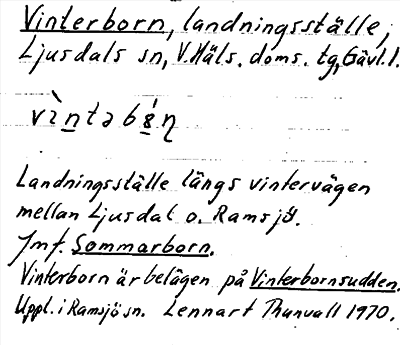 Vinterborn, landningsställe,
Ljusdals sn, V. Häls. doms. tg, Gävl. l.
Landningsställe längs vintervägen
mellan Ljusdal o. Ramsjö.
Jmf. Sommarborn.
Vinterborn är belägen på Vinterbornsudden.
Uppl. i Ramsjö sn. Lennart Thunvall 1970.